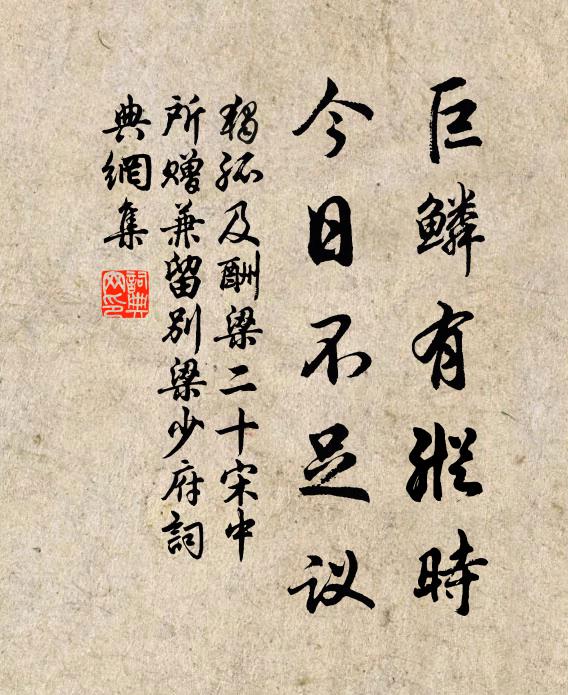 巨鳞有縱時
今日不足议
獨孤及酬梁二十宋中
所赠兼留别梁少府詞
典網集
詞典网印